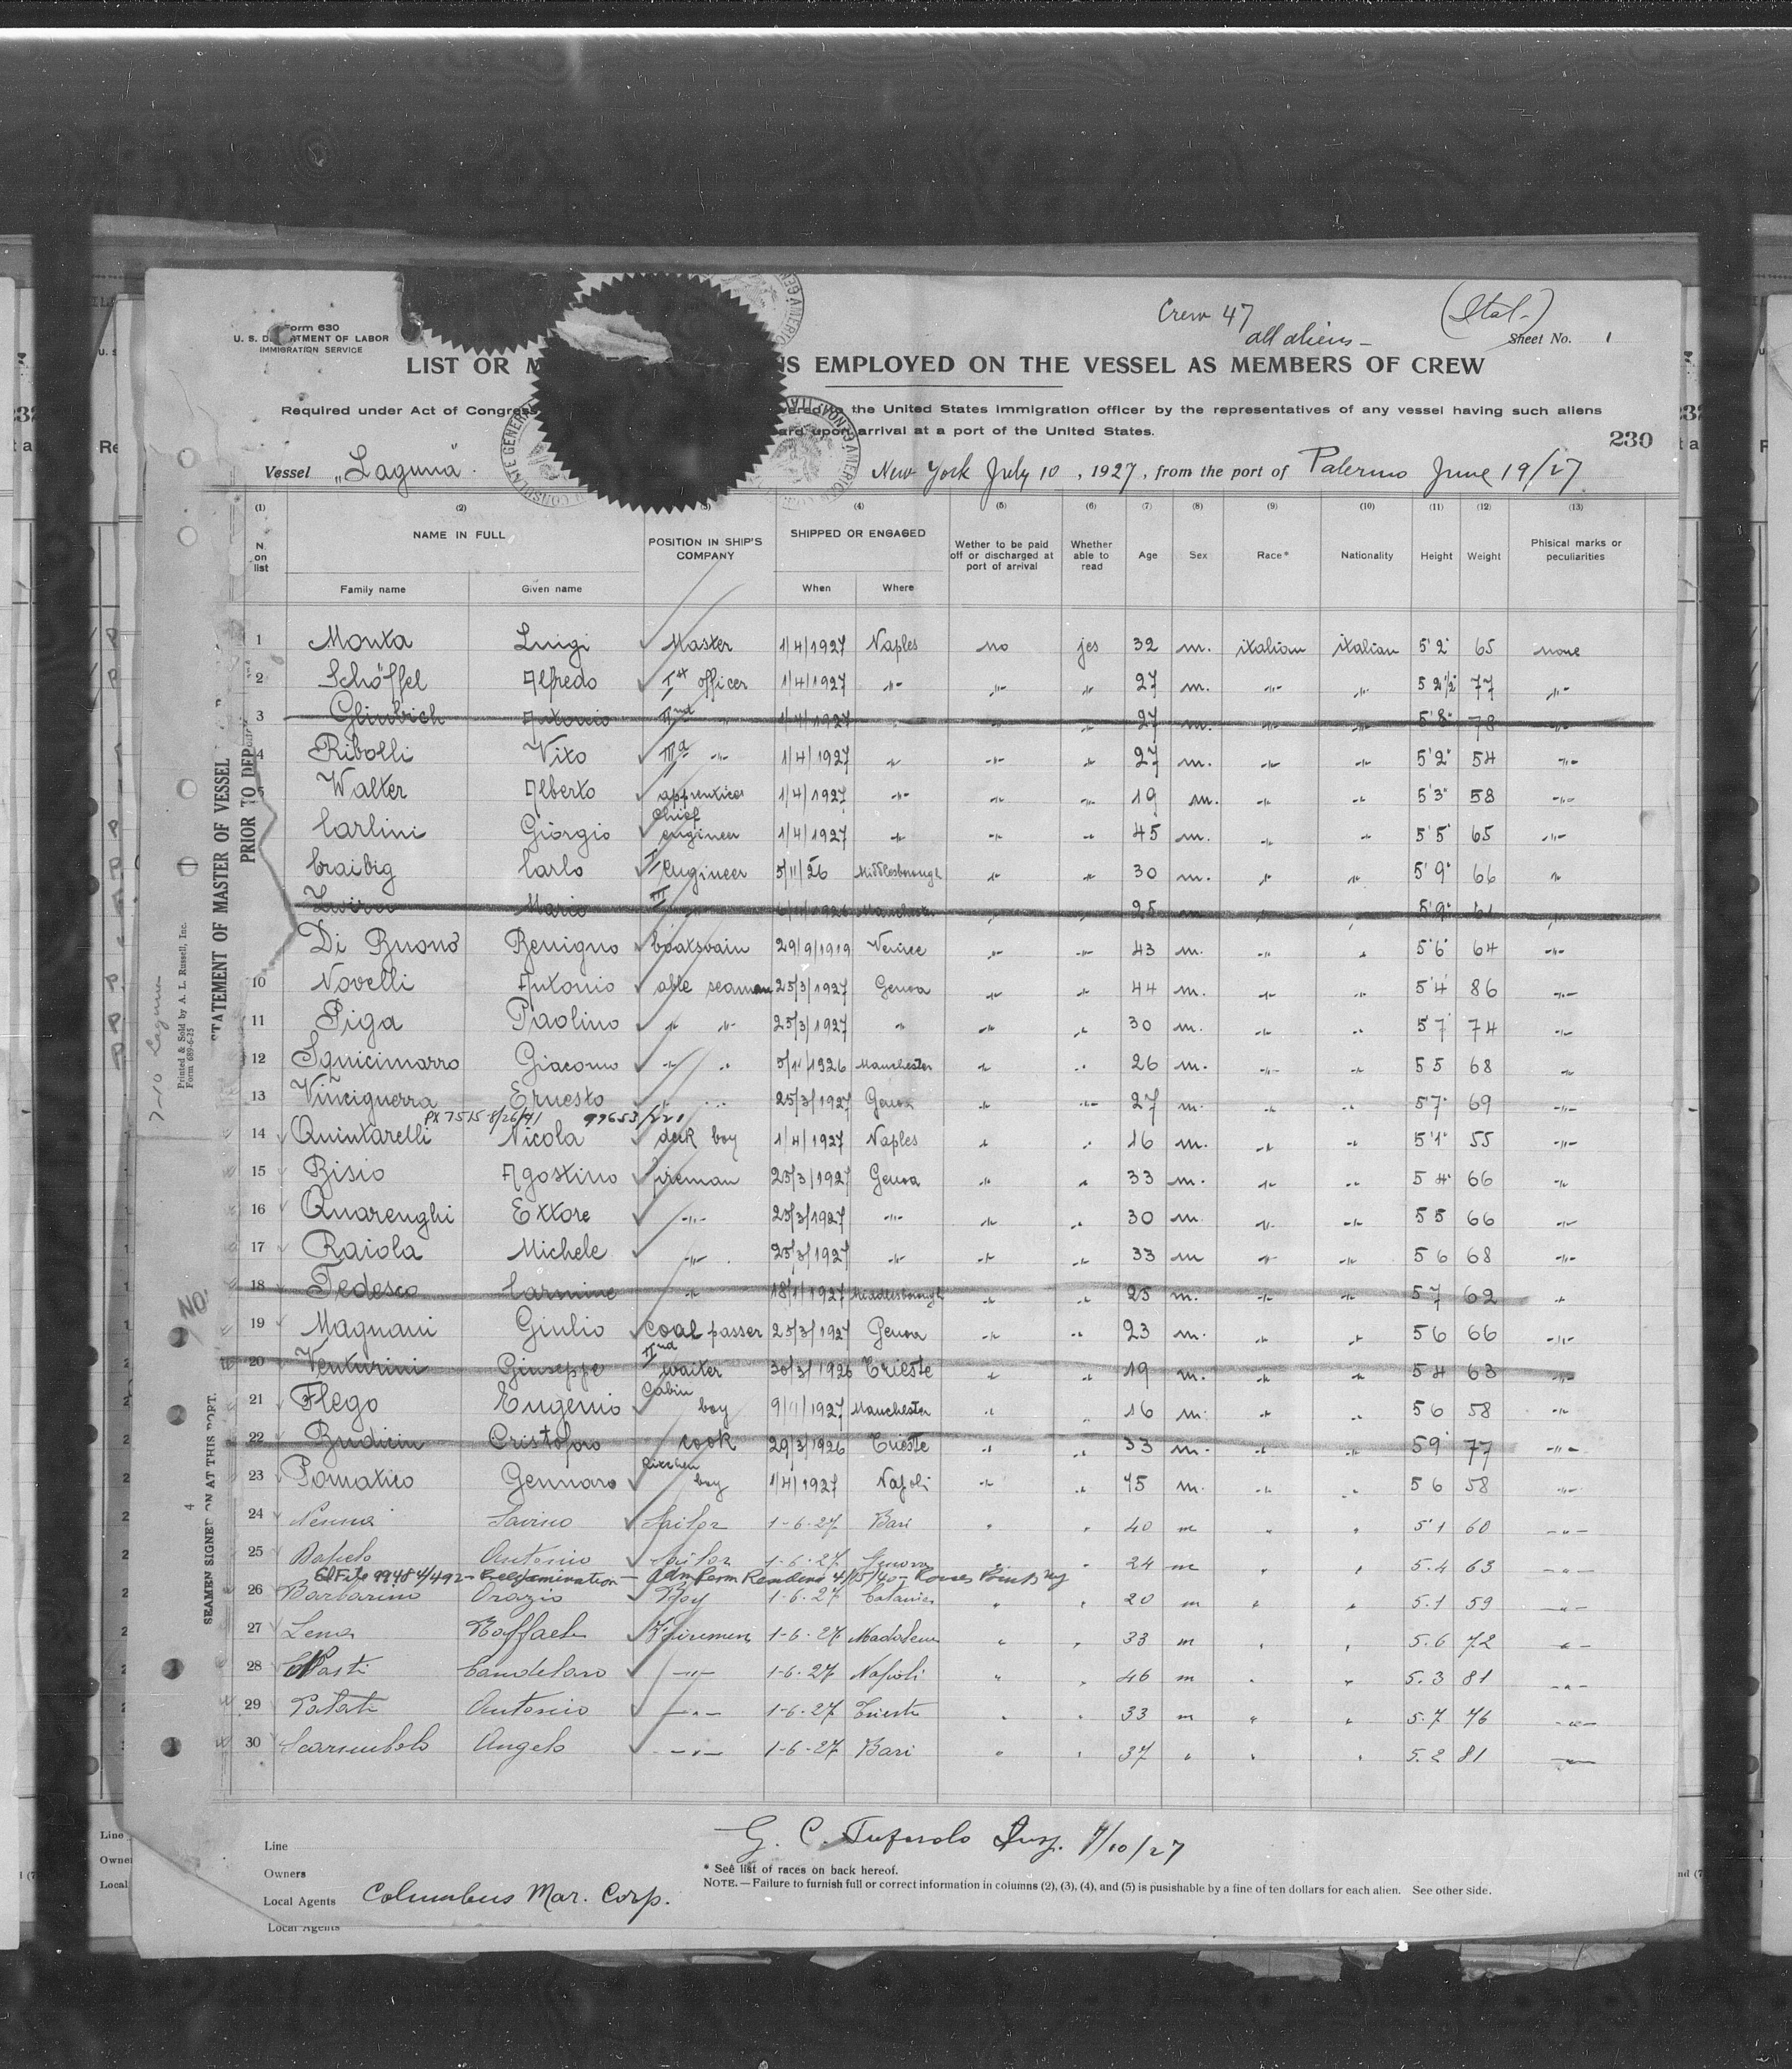 Crew 47
all aliens -
(Ital-)
Form 630
U. S. DEPARTMENT OF LABOR
IMMIGRATION SERVICE
Sheet No. 1
LIST OR M NS EMPLOYED ON THE VESSEL AS MEMBERS OF CREW
Required under Act of Congress the United States immigration officer by the representatives of any vessel having such aliens
upon arrival at a port of the United States.
230
Vessel „Laguna" New York July 10, 1927, from the port of Palermo June 19/27
(1) (2) (3) (4) (5) (6) (7) (8) (9) (10) (11) (12) (13)
N on list NAME IN FULL POSITION IN SHIP'S COMPANY SHIPPED OR ENGAGED Wether to be paid off or discharged at port of arrival Whether able to read Age Sex Race* Nationality Height Weight Phisical marks or peculiarities
Family name Given name When Where
1 Monta Luigi Master 1/4/1927 Naples no jes 32 m. italian italian 5'2" 65 none
2 Schöffel Alfredo Ist officer 1/4/1927 -"- -"- -"- 27 m. -"- -"- 5 2½" 77 -"-
3 Antonio IInd " 1/4/1927 27 m. 5'8" 78
4 Ribolli Vito IIId -"- 1/4/1927 -"- -"- -"- 27 m. -"- -"- 5'2" 54 -"-
5 Walter Alberto apprentice 1/4/1927 -"- -"- -"- 19 m. -"- -"- 5'3" 58 -"-
Carlini Giorgio chief engineer 1/4/1927 -"- -"- -"- 45 m. -"- -"- 5'5" 65 -"-
Craibig Carlo I engineer 5/11/26 Middlesborough -"- -"- 30 m. -"- -"- 5'9" 66 -"-
Mario III 1926 Manchester 25 m 5'9" 61
Di Buono Benigno boatsvain 29/9/1919 Venice -"- -"- 43 m. -"- -"- 5'6" 64 -"-
10 Novelli Antonio able seaman 25/3/1927 Genoa -"- -"- 44 m. -"- -"- 5'4" 86 -"-
11 Piga Paolino -"- -"- 25/3/1927 -"- -"- -"- 30 m. -"- -"- 5 7 74 -"-
12 Squicimarro Giacomo -"- -"- 5/11/1926 Manchester -"- -"- 26 m. -"- -"- 5 5 68 -"-
13 Vinciguerra Ernesto -"- 25/3/1927 Genoa -"- -"- 27 m. -"- -"- 5'7" 69 -"-
PX 7515 8/26/41 99653/221
14 Quintarelli Nicola deck boy 1/4/1927 Naples -"- -"- 16 m. -"- -"- 5'1" 55 -"-
15 Bisio Agostino fireman 25/3/1927 Genoa -"- -"- 33 m. -"- -"- 5 4" 66 -"-
16 Quarenghi Ettore -"- 25/3/1927 -"- -"- -"- 30 m -"- -"- 5 5 66 -"-
17 Raiola Michele -"- 25/3/1927 -"- -"- -"- 33 m -"- -"- 5 6 68 -"-
18 Tedesco Carmine -"- 18/1/1927 Middlesborough -"- -"- 25 m. -"- -"- 5 7 62 -"-
19 Magnani Giulio coal passer 25/3/1927 Genoa -"- -"- 23 m. -"- -"- 5 6 66 -"-
20 Venturini Giuseppe IInd waiter 30/3/1926 Trieste -"- -"- 19 m. -"- -"- 5 4 63 -"-
21 Flego Eugenio Cabin boy 9/11/1927 Manchester -"- -"- 16 m. -"- -"- 5 6 58 -"-
22 Budicin Cristoforo cook 29/3/1926 Trieste -"- -"- 33 m. -"- -"- 5 9 77 -"-
23 Pomatico Gennaro kitchen boy 1/4/1927 Napoli -"- -"- 45 m. -"- -"- 5 6 58 -"-
24 Nenna Savino Sailor 1-6-27 Bari " " 40 m " " 5'1 60 -"-
25 Antonio Sailor 1-6-27 Genova " " 24 m " " 5.4 63 -"-
4/15/40 - Rouses Point NY
26 Barbarino Orazio Boy 1-6-27 Catania " " 20 m " " 5.1 59 -"-
27 Lena Raffaele Firemen 1-6-27 " " 33 m " " 5.6 72 -"-
28 Candeloro -"- 1-6-27 Napoli " " 46 m " " 5.3 81 -"-
29 Antonio -"- 1-6-27 Trieste " " 33 m " " 5.7 76 -"-
30 Angelo -"- 1-6-27 Bari " " 37 " " " 5.2 81 -"-
STATEMENT OF MASTER OF VESSEL
PRIOR TO DEP
SEAMEN SIGNED ON AT THIS PORT.
Printed & Sold by A. L. Russell, Inc.
Form 689-6-25
7-10 Laguna
NO
4
Line
Owners
Local Agents Columbus Mar. Corp.
Local Agents
G. C. Insp. 7/10/27
* See list of races on back hereof.
NOTE. — Failure to furnish full or correct information in columns (2), (3), (4), and (5) is pusishable by a fine of ten dollars for each alien. See other side.